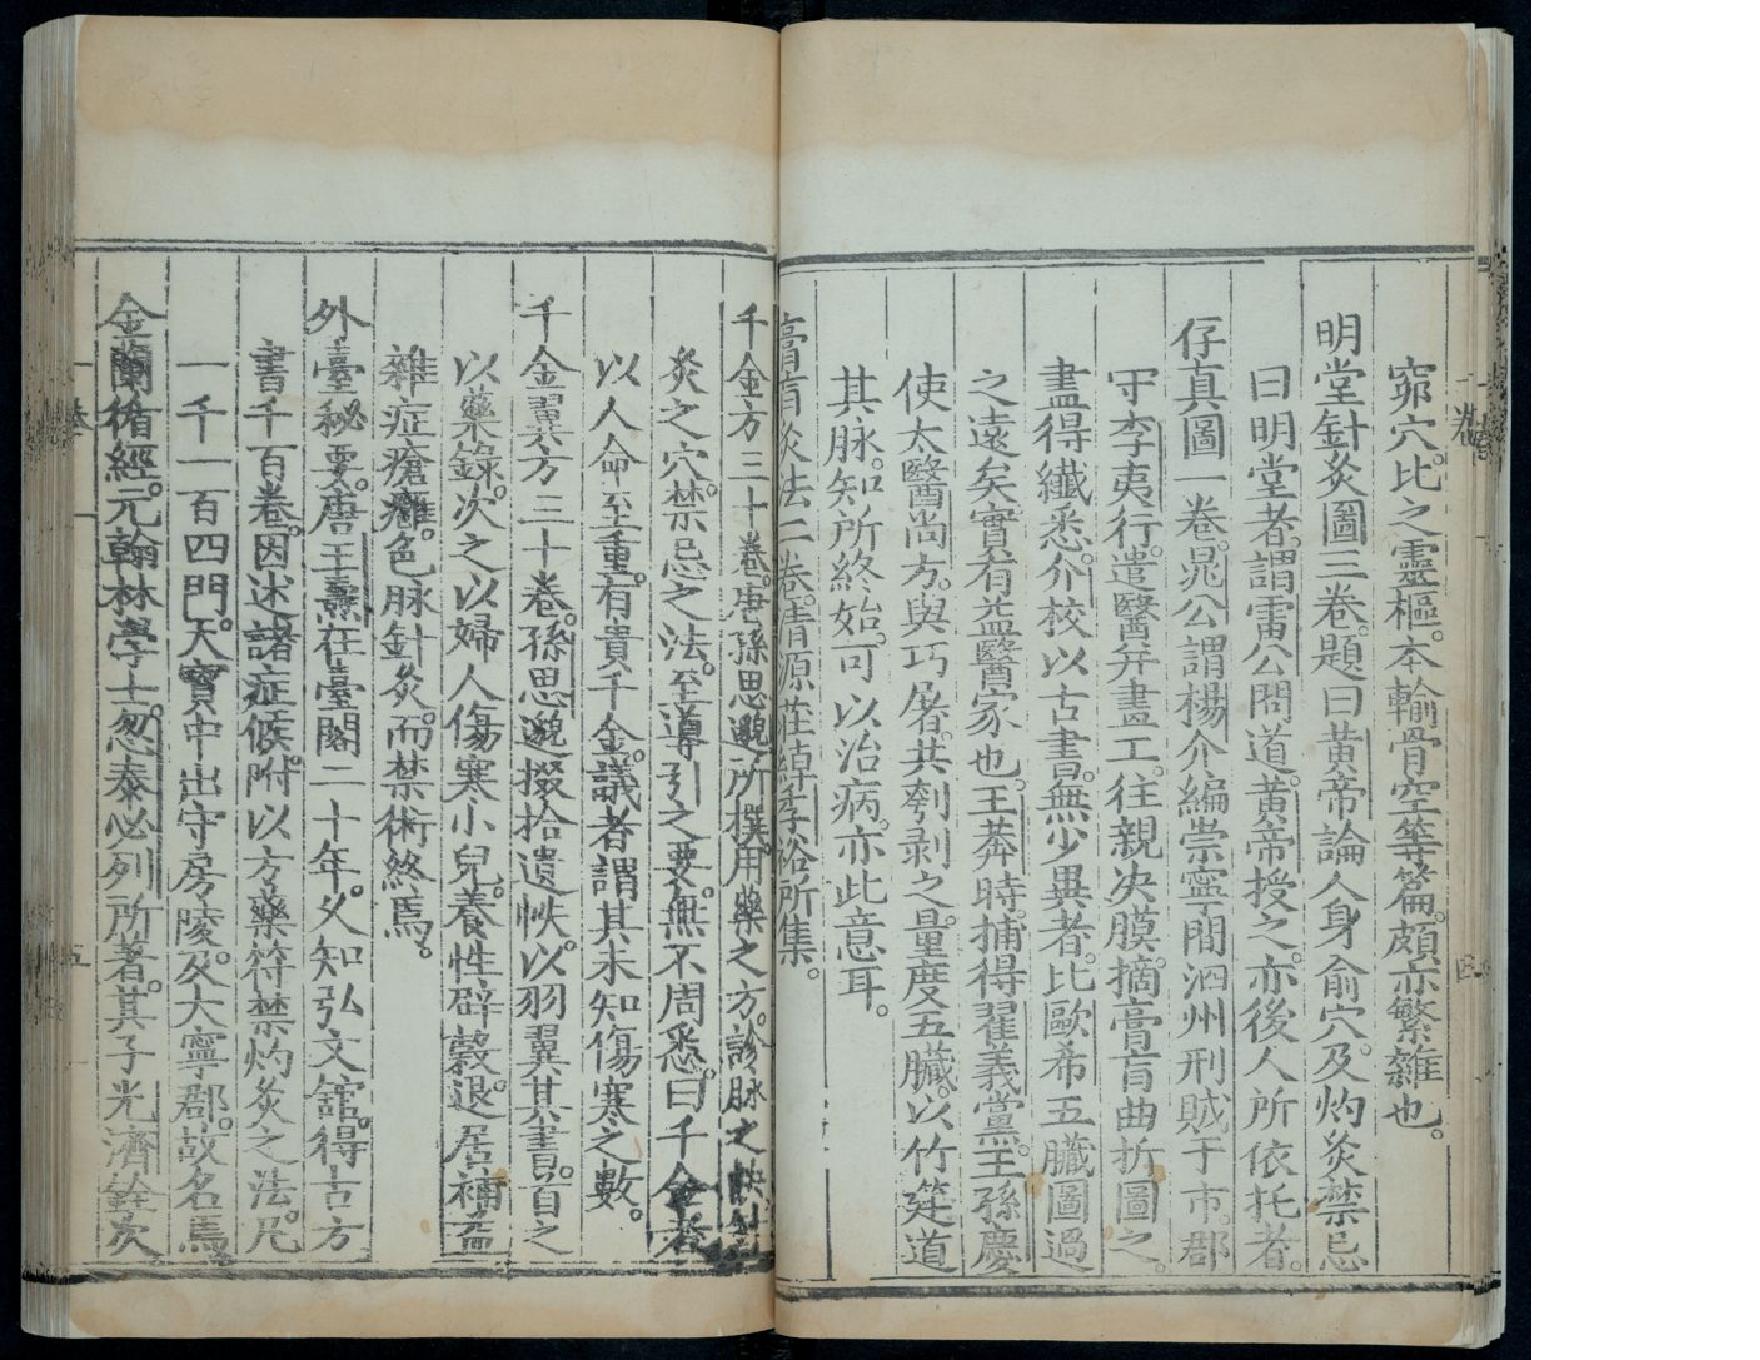 窌穴。比之靈樞。本輸骨空等篇。頗亦繁雜也。
明堂針灸圖三卷。題曰黃帝論人身俞穴。及灼灸禁忌
曰明堂者。謂雷公問道。黃帝授之。亦後人所依托者。
存真圖一卷。晁公謂楊介編崇寧間泗州刑賊于市。郡
守李夷行。遣醫并畫工。往親决膜。摘膏肓曲折圖之。
盡得纖悉。介校以古書。無少異者。比歐希五臟圖過
之遠矣。實有益醫家也。王莽時。捕得翟義黨。王孫慶
使太醫尚方。與巧屠。共刳剥之。量度五臟。以竹筳道
其脉。知所終始。可以治病。亦此意耳。
膏肓灸法二卷。清源莊綽季裕所集。
千金方三十卷。唐孫思邈所撰。用藥之方。診脉之訣。針
灸之穴。禁忌之法。至導引之要。無不周悉。曰千金者
以人命至重。有貴千金。議者謂其未知傷寒之數。
千金翼方三十卷。孫思邈掇拾遺帙。以羽翼其書。首之
以藥錄。次之以婦人傷寒小兒。養性辟穀。退居補益
雜症瘡癰。色脉針灸。而禁術終焉。
外臺秘要。唐王燾在臺閣二十年。久知弘文舘。得古方
書千百卷。因述諸症候。附以方藥符禁灼灸之法。凡
一千一百四門。天寶中出守房陵。及大寧郡。故名焉。
金蘭循經。元翰林學士。忽泰必列所著。其子光濟銓次。